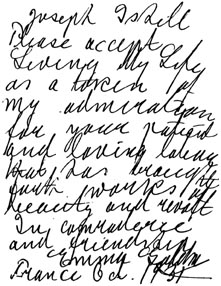 Joseph Ishill
Please accept
Living My Life
as a token of
my admiration
for your patient
and loving labor
that has brought
forth works of
beauty and revolt
In comraderie
and friendship
Emma
France Oct. 1931